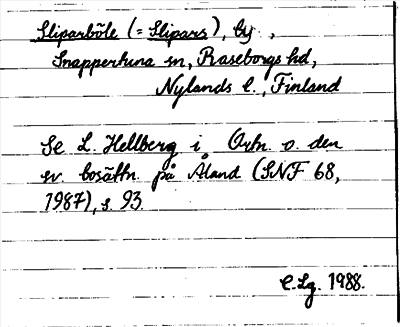 Sliparböle (= Slipars), by,
Snappertuna sn, Raseborgs hd,
Nylands l., Finland
Se L. Hellberg i Ortn. o. den
sv. bosättn. på Åland (SNF 68,
1987), s. 93.
C. Lg. 1988.